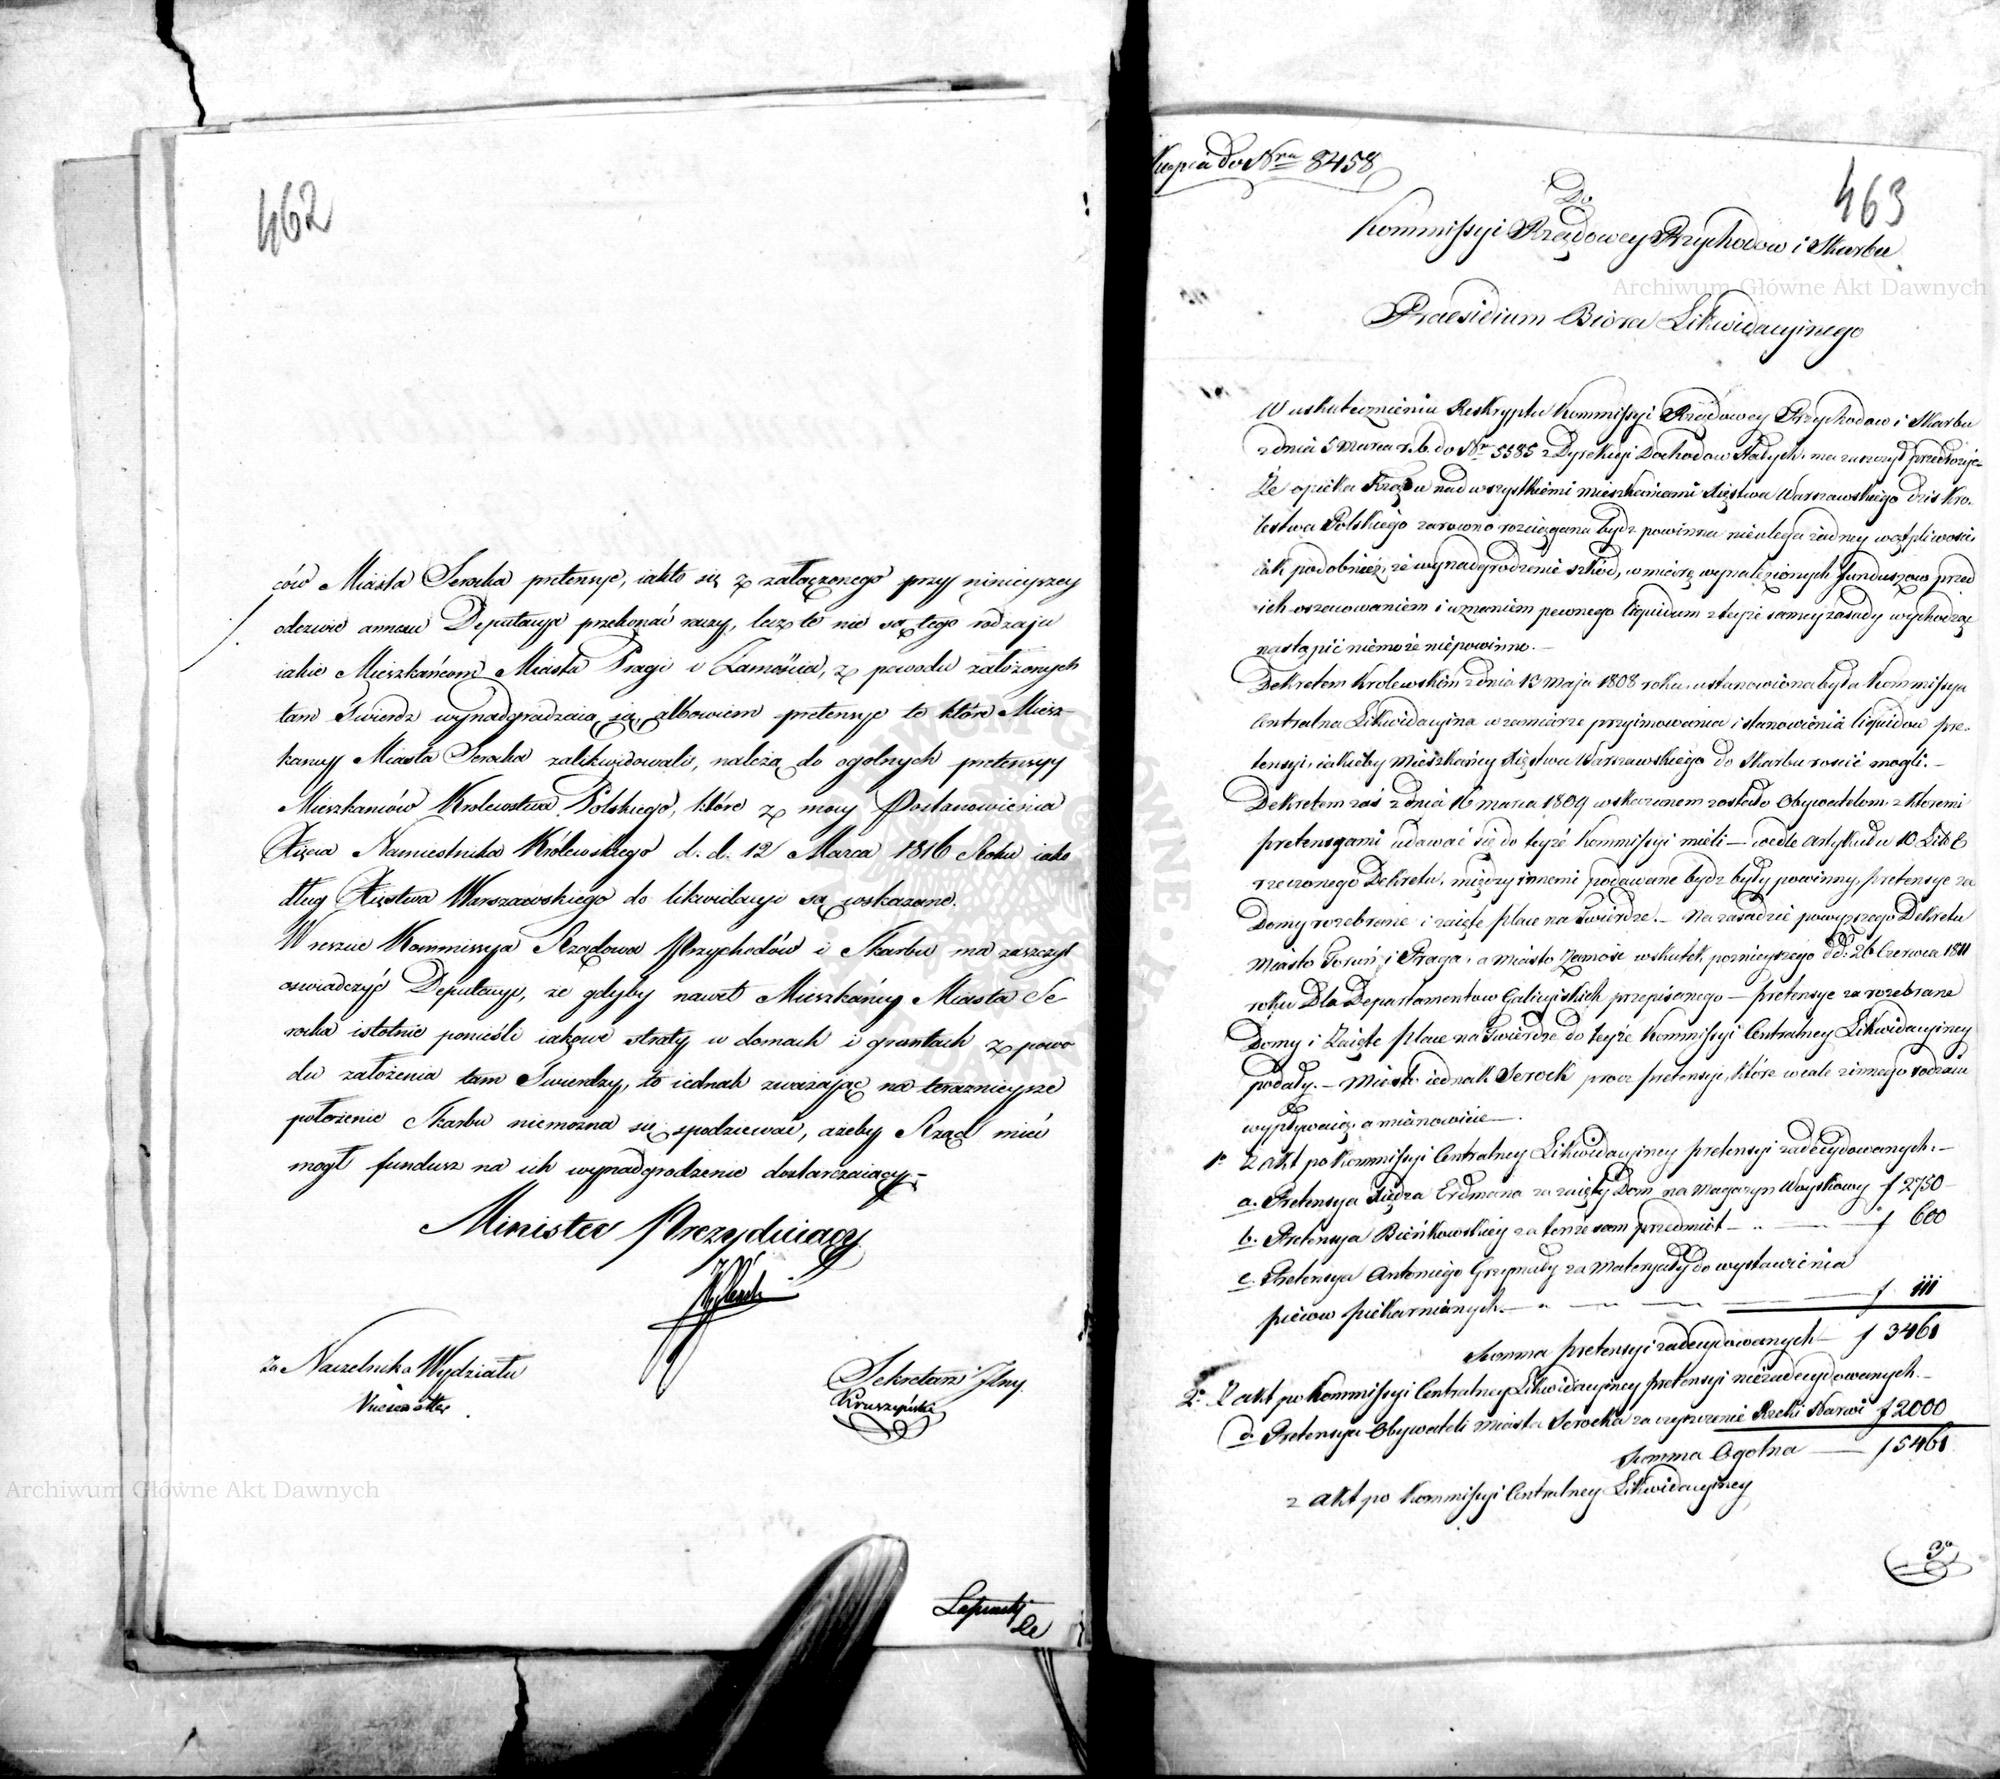 462
ców Miasta Serocka pretensye, iakto się z załączonego przy ninieyszey
odezwie annexu Deputacya przekonać raczy, lecz te nie są tego rodzaju
iakie Mieszkańcom Miasta Pragi i Zamościa, z powodu założonych
tam Twierdz wynadgradzaią się, albowiem pretensye te które Miesz-
kańcy Miasta Serocka zalikwidowali, należą do ogolnych pretensyy
Mieszkańców Krolewstwa Polskiego, które z mocy Postanowienia
Xięcia Namiestnika Królewskiego d. d. 12 Marca 1816 Roku iako
dług Xięstwa Warszawskiego do likwidacyi są wskazane.
Wreszcie Kommissya Rządowa Przychodów i Skarbu ma zaszczyt
oswiadczyć Deputacyi, że gdyby nawet Mieszkańcy Miasta Se
rocka istotnie ponieśli iakowe straty w domach i gruntach z powo
du założenia tam Twierdzy, to iednak zważając na teraznieysze
położenie Skarbu niemożna się spodziewać, ażeby Rząd mieć
mogł fundusz na ich wynadgrodzenie dostarczaiący.-
Minister Prezyduiący
Za Naczelnika Wydziału
Sekretarz Jlny.
Kruszyński
Kopia do Nru 8458
463
Do
Kommissyi Rządowey Przychodow i Skarbu
Praesidium Biora Likwidacyinego
W uskutecznieniu Reskryptu Kommissyi Rządowey Przychodow i Skarbu
z dnia 5 Marca r. b. do Nr 5585 z Dyrekcyi Dochodow Stałych, ma zaszczyt przełożyć
Że opieka Rządu nad wszystkiemi mieszkańcami Xięstwa Warszawskiego dziś Kro-
lestwa Polskiego zarowno rozciągana bydz powinna nieulega żadney wątpliwości,
iak podobnież, że wynadgrodzenie szkód, w miarę wynalezionych funduszow, przed
ich oszacowaniem i uznaniem pewnego liquidum z teyże samey zasady wychodząc
nastąpić niemoże niepowinno.-
Dekretem Krolewskim z dnia 13 Maja 1808 roku, ustanowiona była Kommissya
Centralna Likwidacyina w zamiarze przyimowania i stanowienia liquidow pre-
tensyi, iakieby Mieszkańcy Xięstwa Warszawskiego do Skarbu rościć mogli.-
Dekretem zaś z dnia 16 Marca 1809 wskazanem zostało Obywatelom z ktoremi
pretensyami udawać się do teyże Kommissyi mieli - wedle Artykułu 10 Lit C
rzeczonego Dekretu, między innemi podawane bydz były powinny, pretensye za
Domy rozebrane i zaięte place na Twierdze.- Na zasadzie powyższego Dekretu
Miasto Toruń i Praga, a Miasto Zamość wskutek poznieyszego dd: 26 Czerwca 1811
roku Dla Departamentow Galicyiskich przepisanego - pretensye za rozebrane
Domy i Zaięte place na Twierdze do teyże Kommissyi Centralney Likwidacyiney
podały.- Miasto iednak Serock procz pretensyi, które wcale z innego rodzaiu
wypływaią, a mianowicie -
1o Z akt po Kommissyi Centralney Likwidacyiney pretensyi zadecydowanych.-
a. Pretensya Xiędza Erdmana za zaięty Dom na Magazyn Woyskowy f 2750
b. Pretensya Bieńkowskiey za tenże sam przedmiot - f 600
c. Pretensya Antoniego Grzymały za Materyały do wystawienia
piecow piekarnianych - f 111
Summa pretensyi zadecydowanych - f 3461
2o Z akt po Kommissyi Centralney Likwidacyiney pretensyi niezadecydowanych.-
d. Pretensya Obywateli Miasta Serocka za czyszczenie Rzeki Narwi f 2000
Summa Ogolna - f 5461
z akt po Kommissyi Centralney Likwidacyiney
3o
Archiwum Główne Akt Dawnych
Archiwum Główne Akt Dawnych